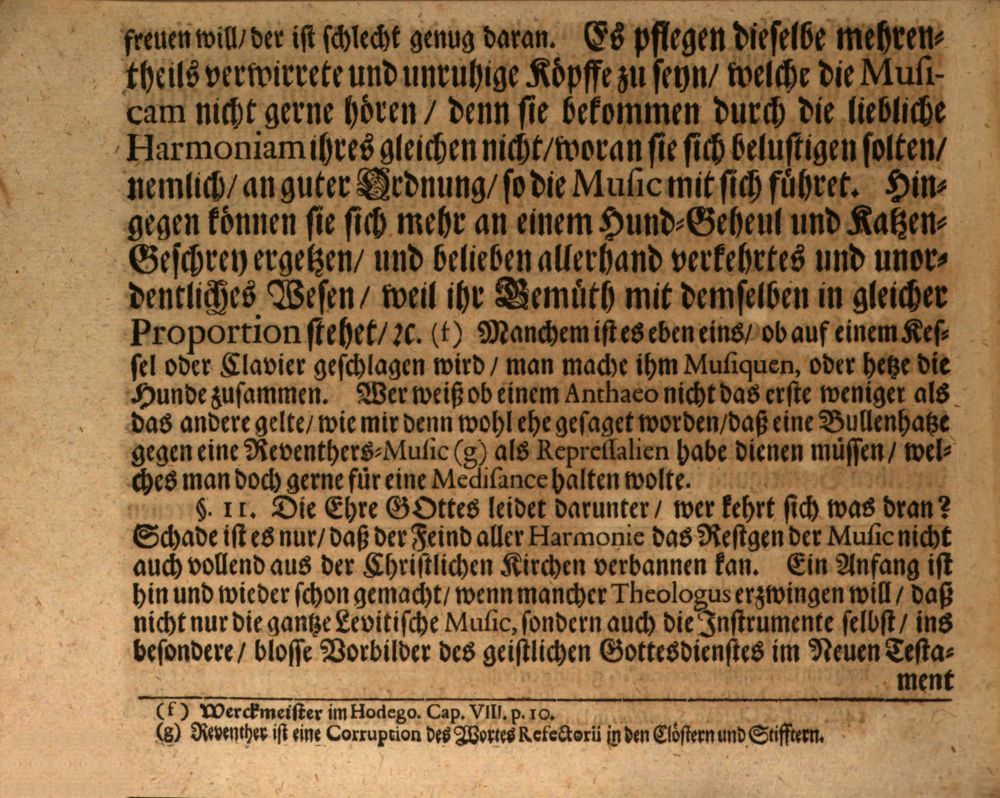 freuen will/ der ist schlecht genug daran. Es pflegen dieselbe mehren-
theils verwirrete und unruhige Köpffe zu seyn/ welche die Musi-
cam nicht gerne hören / denn sie bekommen durch die liebliche
Harmoniam ihres gleichen nicht/ woran sie sich belustigen solten/
nemlich/ an guter Ordnung/ so die Music mit sich führet. Hin-
gegen können sie sich mehr an einem Hund-Geheul und Katzen-
Geschrey ergetzen/ und belieben allerhand verkehrtes und unor-
dentliches Wesen/ weil ihr Gemüth mit demselben in gleicher
Proportion stehet/ ꝛc. (f) Manchem ist es eben eins/ ob auf einem Kes-
sel oder Clavier geschlagen wird / man mache ihm Musiquen, oder hetze die
Hunde zusammen. Wer weiß ob einem Anthaeo nicht das erste weniger als
das andere gelte/ wie mir denn wohl ehe gesaget worden/ daß eine Bullenhatze
gegen eine Reventhers-Music (g) als Repressalien habe dienen müssen/ wel-
ches man doch gerne für eine Medisance halten wolte.
§. 11. Die Ehre GOttes leidet darunter/ wer kehrt sich was dran?
Schade ist es nur/ daß der Feind aller Harmonie das Restgen der Music nicht
auch vollend aus der Christlichen Kirchen verbannen kan. Ein Anfang ist
hin und wieder schon gemacht/ wenn mancher Theologus erzwingen will / daß
nicht nur die gantze Levitische Music, sondern auch die Instrumente selbst/ ins
besondere/ blosse Vorbilder des geistlichen Gottesdienstes im Neuen Testa-
ment
(f) Werckmeister im Hodego. Cap. VIII. p. 10.
(g) Reventher ist eine Corruption des Wortes Refectorii in den Clöstern und Stifftern.